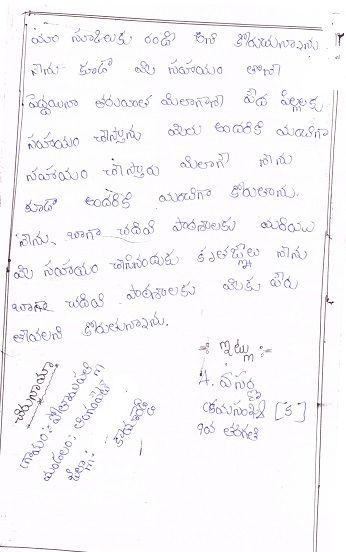 మా స్కూలుకు రండి అని కోరుచున్నాను
నేను కూడా మీ సహాయం తోనే
పెద్దయినా తరువాత మీలాగానే పేద పిల్లలకు
సహాయం చేస్తాను మీరు అందరికి మంచిగా
సహాయం చేస్తారు మీలాగే నేను
కూడా అందరికి మంచిగా కోరుతాను.
నేను బాగా చదివి పాఠశాలకు మరియు
మీ సహాయం చేసినందుకు కృతజ్ఞతలు నేను
బాగా చదివి పాఠశాలకు మీకు పేరు
తేవాలని కోరుతున్నాను.
ఇట్లు
A. వసర్ణ
క్రమసంఖ్య [5]
9వ తరగతి
చిరునామా
గ్రామం:-
మండలం:-
జిల్లా:-